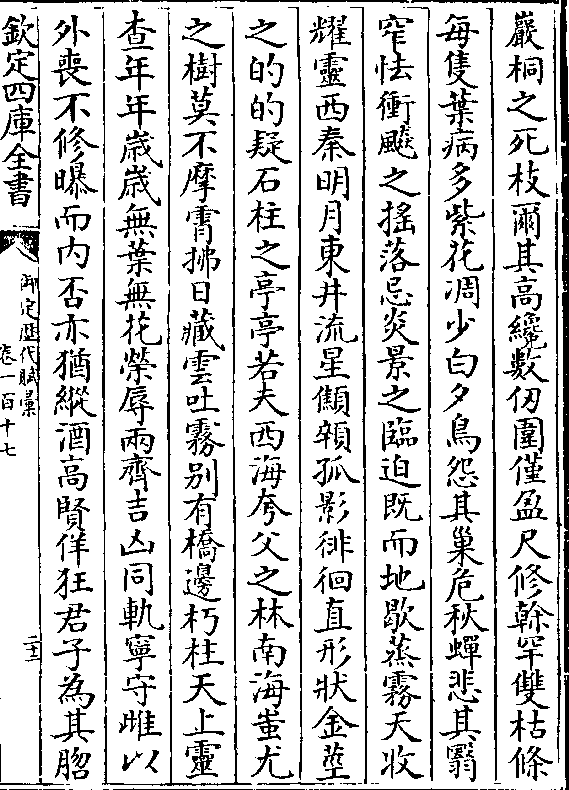 巖桐之死枝爾其高纔數仞圍僅盈尺修榦罕雙枯條
每隻葉病多紫花凋少白夕鳥怨其巢危秋蟬悲其翳
窄怯衝飈之搖落忌炎景之臨迫既而地歇蒸霧天收
耀靈西秦明月東井流星顦顇孤影徘徊直形狀金莖
之的的疑石柱之亭亭若夫西海夸父之林南海蚩尤
之樹莫不摩霄拂日藏雲吐霧别有橋邊朽柱天上靈
查年年歲歲無葉無花榮辱兩齊吉凶同軌寧守雌以
外喪不修曝而内否亦猶縱酒高賢佯狂君子為其䐇
欽定四庫全書
御定歷代賦彙
卷一百十七
二十二